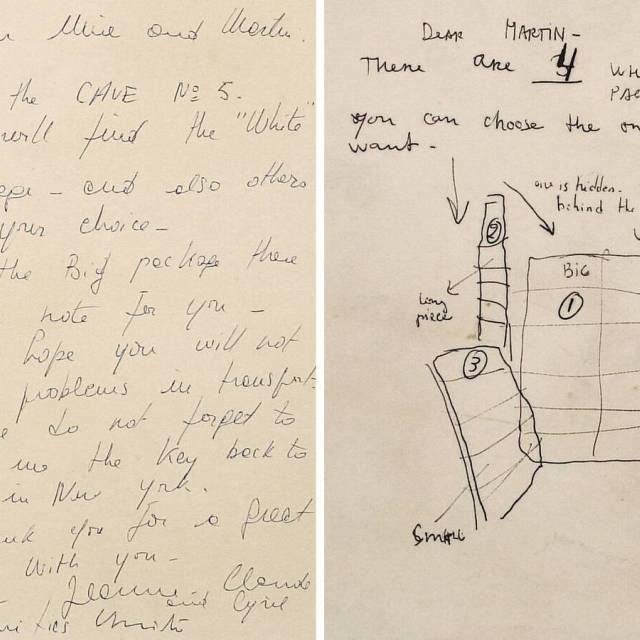 Mine and Martin.
the CAVE Nº 5.
will find the "White"
and also others
your choice -
the Big package there
note for you -
hope you will not
problems in transport-
do not forget to
the key back to
in New York.
you for a great
with you -
Jeanne Claude
and Cyril
DEAR MARTIN -
There are 4 WH
PAC
you can choose the on
want -
one is hidden.
behind the
2
BIG
1
long
piece
3
SMALL